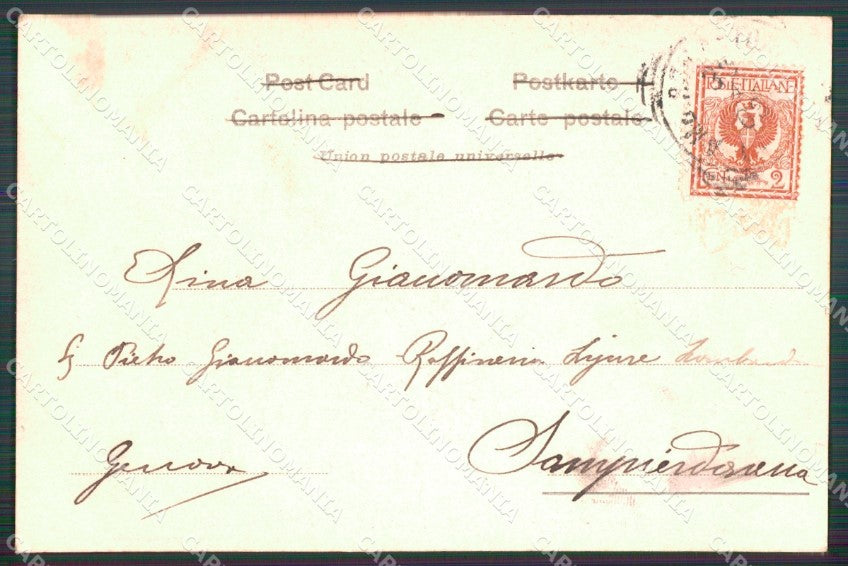 Post Card Postkarte
Cartolina postale Carte postale
Union postale universelle
POSTE ITALIANE
2
Rina Gianomardo
Pietro Gianomardo Raffineria Ligure Lombarda
Genova Sampierdarena
CARTOLINOMANIA